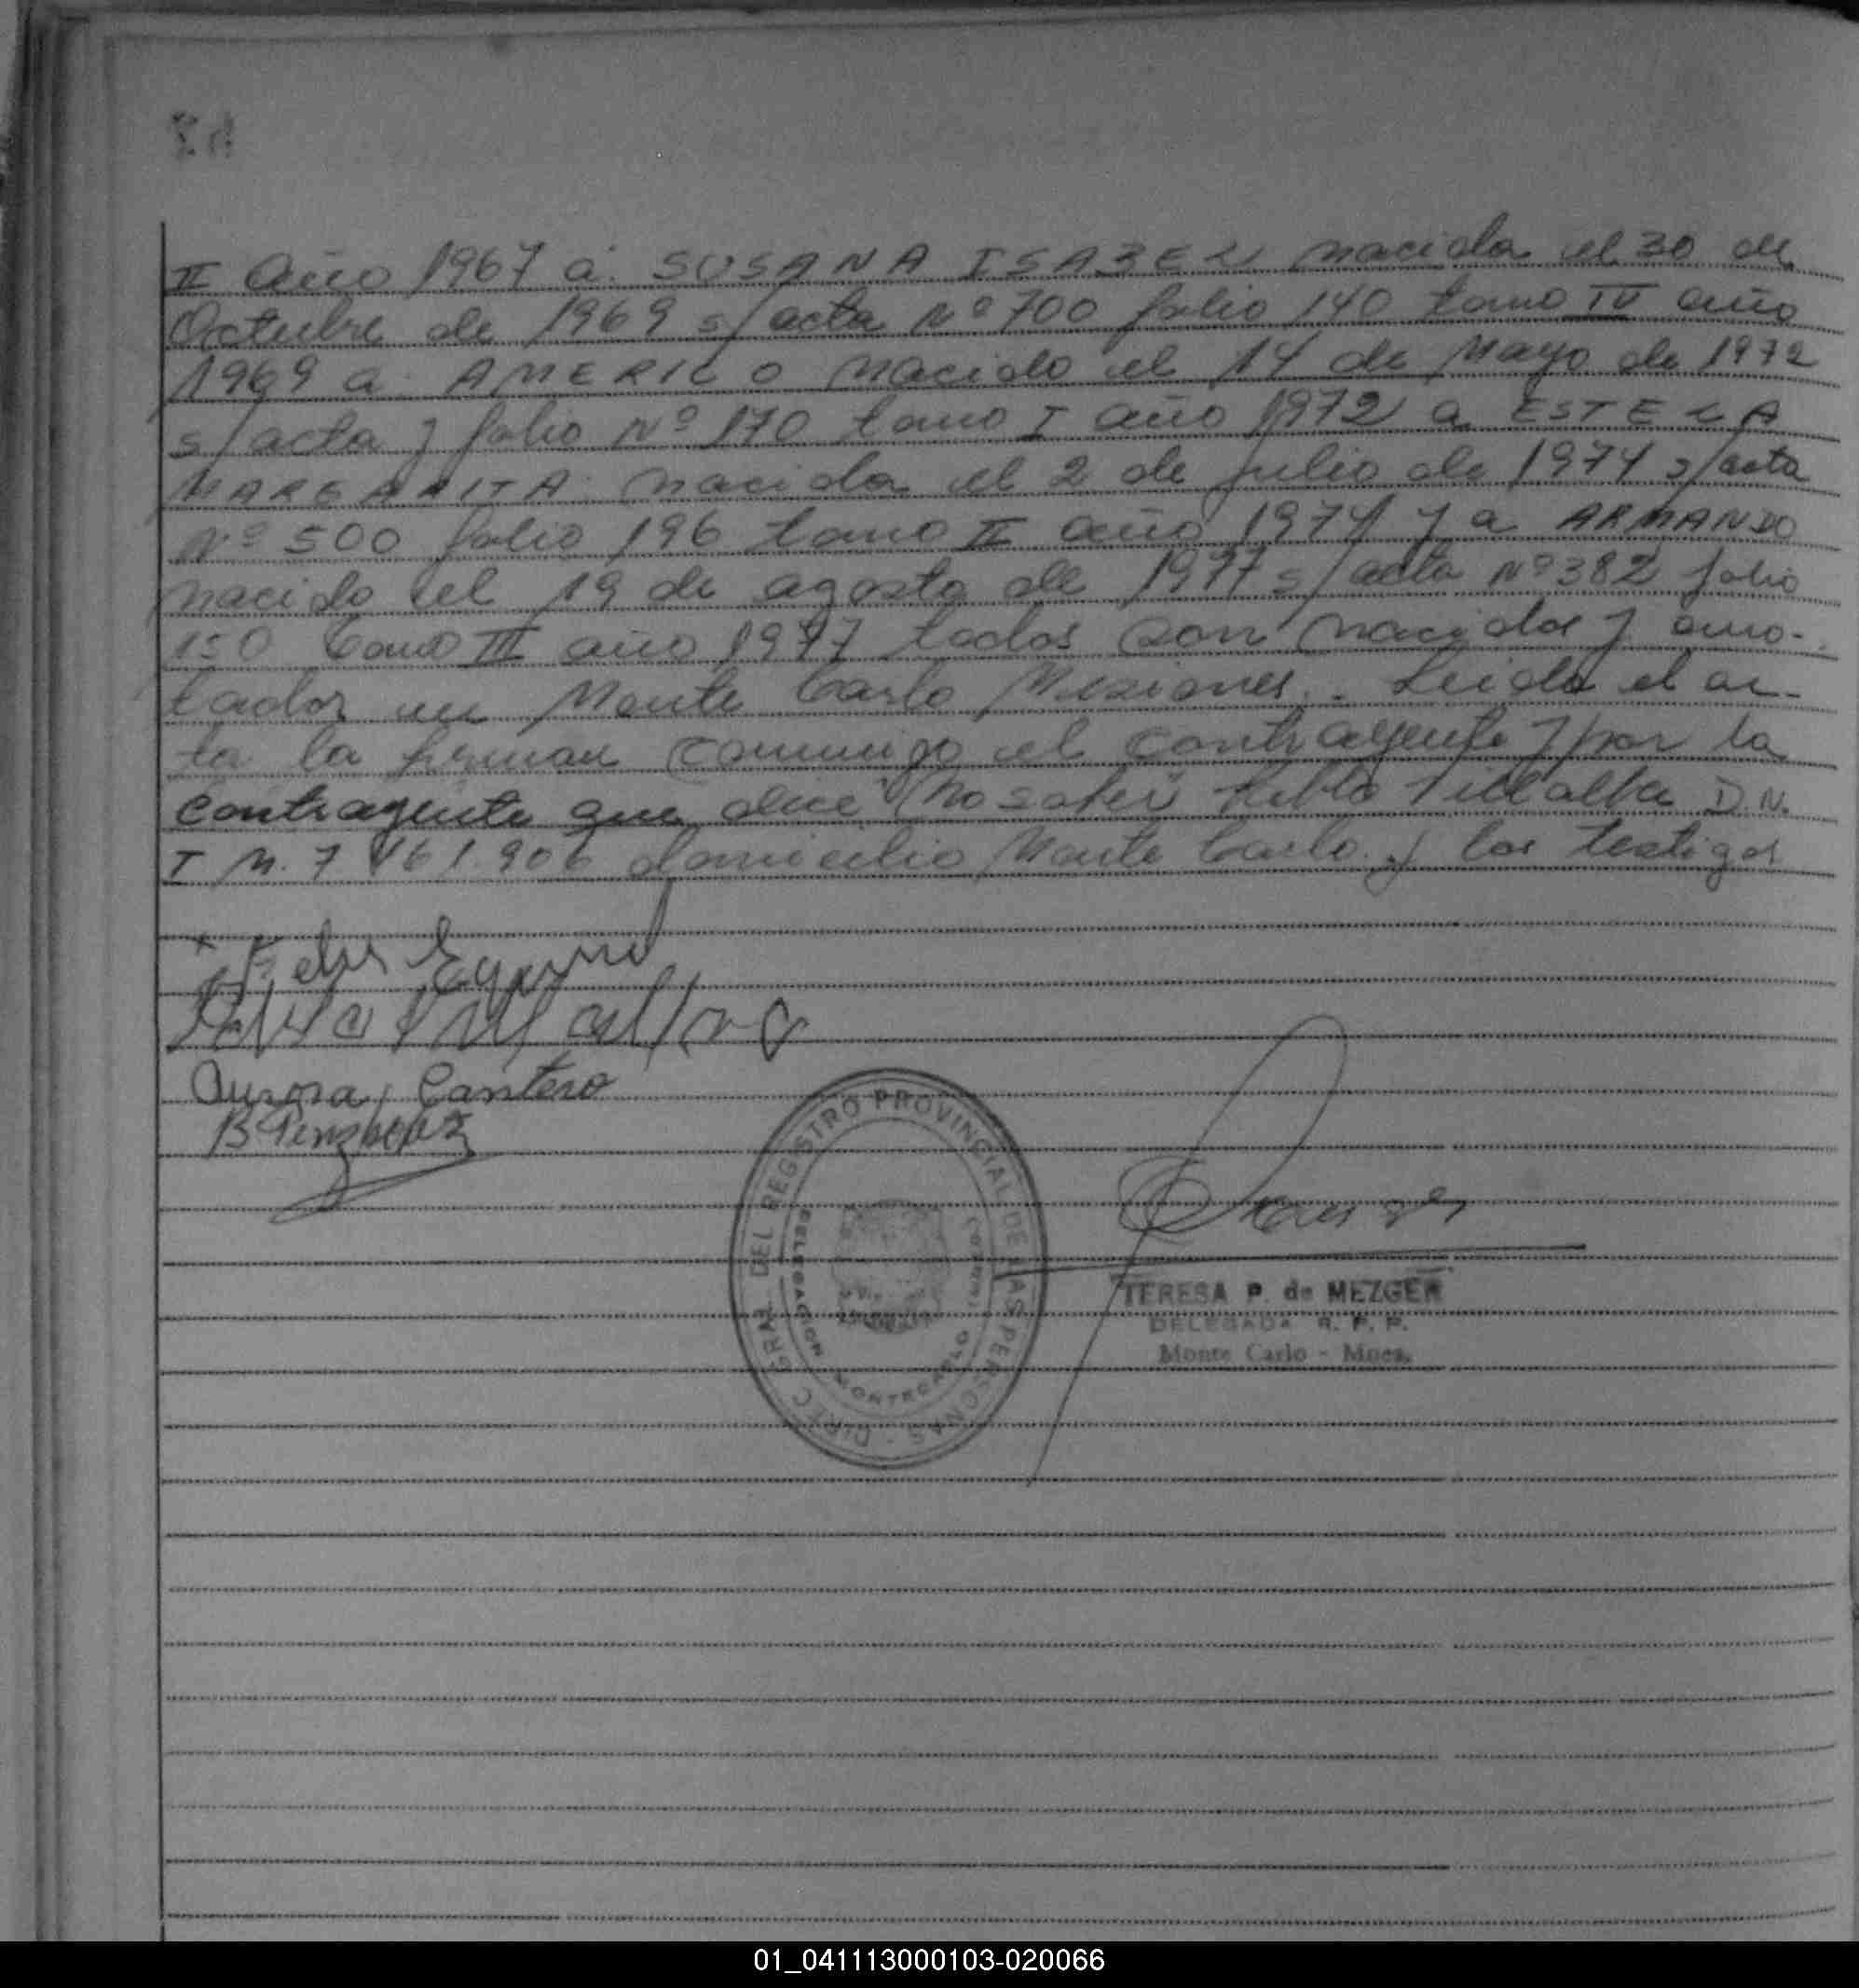 II año 1967 a SUSANA ISABEL nacida el 30 de
Octubre de 1969 s/acta Nº 700 folio 140 tomo IV año
1969 a AMERICO nacido el 14 de Mayo de 1972
s/acta y folio Nº 170 tomo I año 1972 a ESTELA
MARGARITA nacida el 2 de Julio de 1974 s/acta
Nº 500 folio 196 tomo II año 1974 y a ARMANDO
nacido el 19 de agosto de 1977 s/acta Nº 382 folio
150 tomo III año 1977 todos son nacidos y ano-
tados en Monte Carlo Misiones.- Leida el ac-
ta la firman conmigo el contrayente y por la
contrayente que dice no saber Villalba D.N.
I M. 7 domicilio Monte Carlo y los testigos
Villalba
Aurora Cantero
DIREC. GRAL. DEL REGISTRO PROVINCIAL DE LAS PERSONAS
DELEGACION MONTECARLO (MISIONES)
TERESA P. de MEZGER
DELEGADA R. P. P.
Monte Carlo - Mnes.
01_041113000103-020066